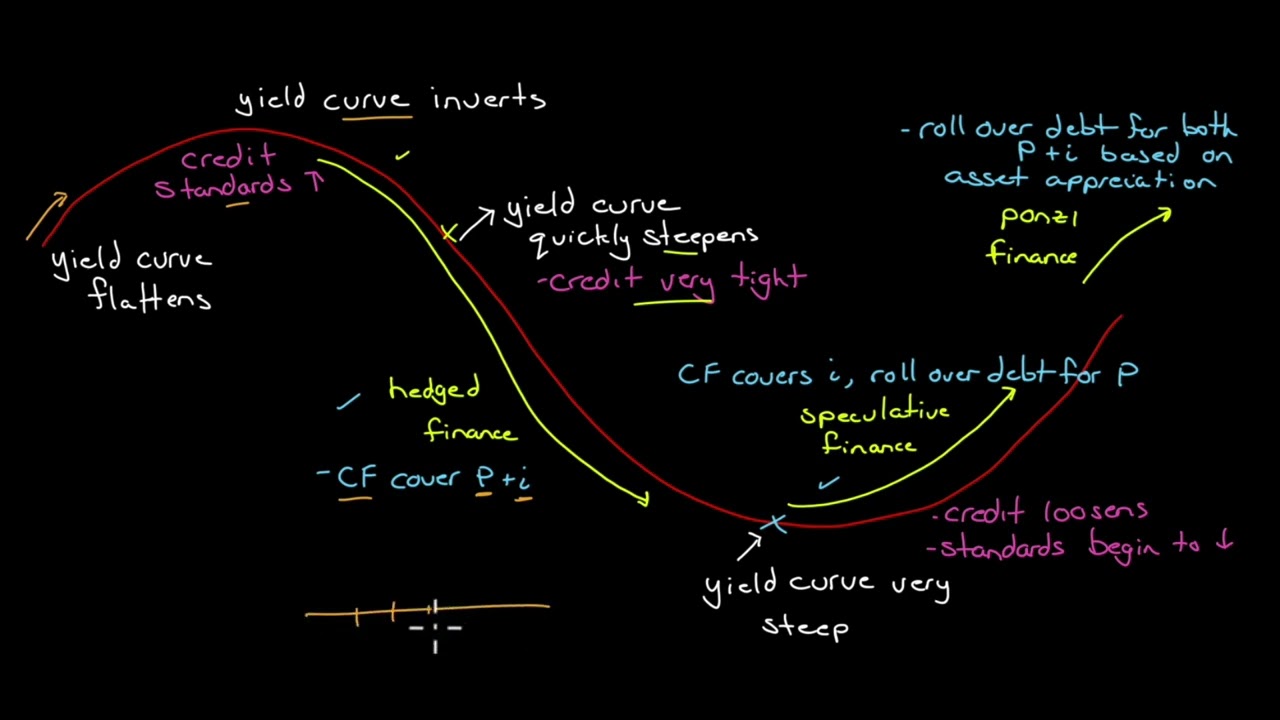 yield curve inverts
credit
standards ↑
yield curve
flattens
yield curve
quickly steepens
-credit very tight
- roll over debt for both
P + i based on
asset appreciation
ponzi
finance
hedged
finance
- CF cover P + i
CF covers i, roll over debt for P
speculative
finance
- credit loosens
- standards begin to ↓
yield curve very
steep